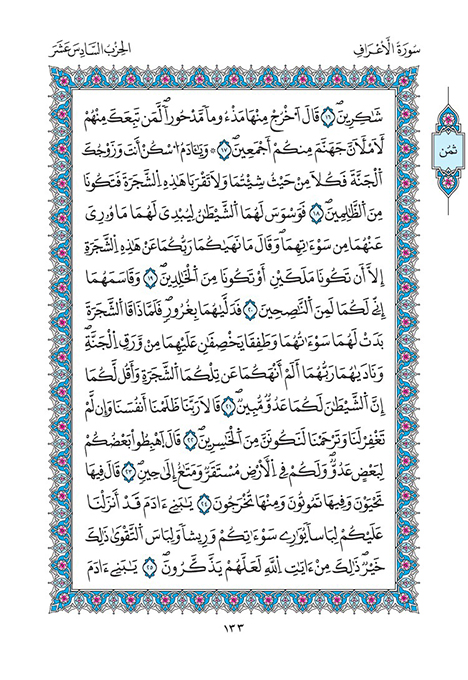 سُورَةُ الْأَعْرَافِ
الحِزْبُ السَّادِسَ عَشَرَ
ثُمُن
شَٰكِرِينَۖ ١٦ قَالَ اَخْرُجْ مِنْهَا مَذْءُوماٗ مَّدْحُوراٗۖ لَّمَن تَبِعَكَ مِنْهُمْ
لَأَمْلَأَنَّ جَهَنَّمَ مِنكُمُۥٓ أَجْمَعِينَۖ ١٧ ۞ وَيَٰٓـَٔادَمُ اُ۟سْكُنَ اَنتَ وَزَوْجُكَ
اَ۬لْجَنَّةَ فَكُلَا مِنْ حَيْثُ شِئْتُمَا وَلَا تَقْرَبَا هَٰذِهِ اِ۬لشَّجَرَةَ فَتَكُونَا
مِنَ اَ۬لظَّٰلِمِينَۖ ١٨ فَوَسْوَسَ لَهُمَا اَ۬لشَّيْطَٰنُ لِيُبْدِيَ لَهُمَا مَا وُۥرِيَ
عَنْهُمَا مِن سَوْءَٰتِهِمَاۖ وَقَالَ مَا نَهَيٰكُمَا رَبُّكُمَا عَنْ هَٰذِهِ اِ۬لشَّجَرَةِ
إِلَّآ أَن تَكُونَا مَلَكَيْنِ أَوْ تَكُونَا مِنَ اَ۬لْخَٰلِدِينَۖ ١٩ وَقَاسَمَهُمَآ
إِنِّے لَكُمَا لَمِنَ اَ۬لنَّٰصِحِينَ ٢٠ فَدَلَّيٰهُمَا بِغُرُورٖۖ فَلَمَّا ذَاقَا اَ۬لشَّجَرَةَ
بَدَتْ لَهُمَا سَوْءَٰتُهُمَا وَطَفِقَا يَخْصِفَٰنِ عَلَيْهِمَا مِنْ وَّرَقِ اِ۬لْجَنَّةِۖ
وَنَادَيٰهُمَا رَبُّهُمَآ أَلَمَ اَنْهَكُمَا عَن تِلْكُمَا اَ۬لشَّجَرَةِ وَأَقُل لَّكُمَآ
إِنَّ اَ۬لشَّيْطَٰنَ لَكُمَا عَدُوّٞ مُّبِينٞۖ ٢١ قَالَا رَبَّنَا ظَلَمْنَآ أَنفُسَنَا وَإِن لَّمْ
تَغْفِرْ لَنَا وَتَرْحَمْنَا لَنَكُونَنَّ مِنَ اَ۬لْخَٰسِرِينَۖ ٢٢ قَالَ اَ۪هْبِطُواْ بَعْضُكُمْ
لِبَعْضٍ عَدُوّٞۖ وَلَكُمْ فِے اِ۬لْأَرْضِ مُسْتَقَرّٞ وَمَتَٰعٌ إِلَىٰ حِينٖۖ ٢٣ قَالَ فِيهَا
تَحْيَوْنَ وَفِيهَا تَمُوتُونَ وَمِنْهَا تُخْرَجُونَۖ ٢٤ يَٰبَنِےٓ ءَادَمَ قَدَ اَنزَلْنَا
عَلَيْكُمْ لِبَاساٗ يُوَٰرِے سَوْءَٰتِكُمْ وَرِيشاٗۖ وَلِبَاسَ اَ۬لتَّقْوَىٰ ذَٰلِكَ
خَيْرٞۖ ذَٰلِكَ مِنَ اٰيَٰتِ اِ۬للَّهِ لَعَلَّهُمْ يَذَّكَّرُونَۖ ٢٥ يَٰبَنِےٓ ءَادَمَ
١٣٣